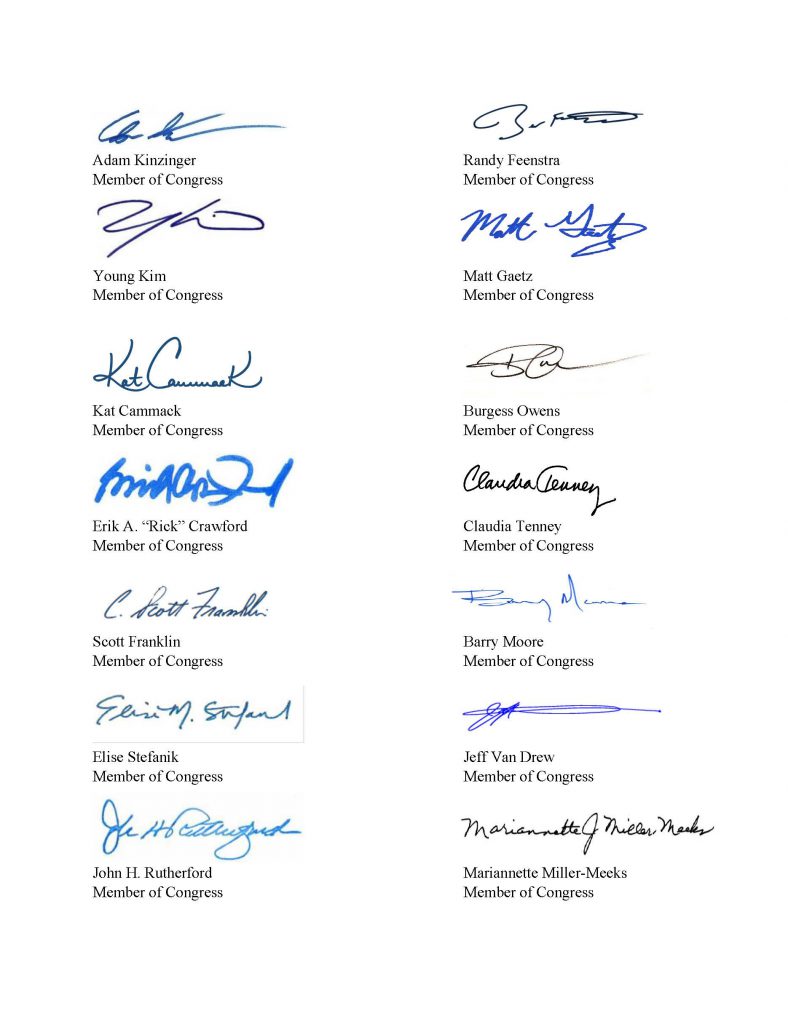 Adam Kinzinger
Member of Congress
Randy Feenstra
Member of Congress
Young Kim
Member of Congress
Matt Gaetz
Matt Gaetz
Member of Congress
Kat Cammack
Kat Cammack
Member of Congress
Burgess Owens
Member of Congress
Erik A. “Rick” Crawford
Member of Congress
Claudia Tenney
Claudia Tenney
Member of Congress
C. Scott Franklin
Scott Franklin
Member of Congress
Barry Moore
Barry Moore
Member of Congress
Elise M. Stefanik
Elise Stefanik
Member of Congress
Jeff Van Drew
Member of Congress
John H. Rutherford
John H. Rutherford
Member of Congress
Mariannette J Miller-Meeks
Mariannette Miller-Meeks
Member of Congress